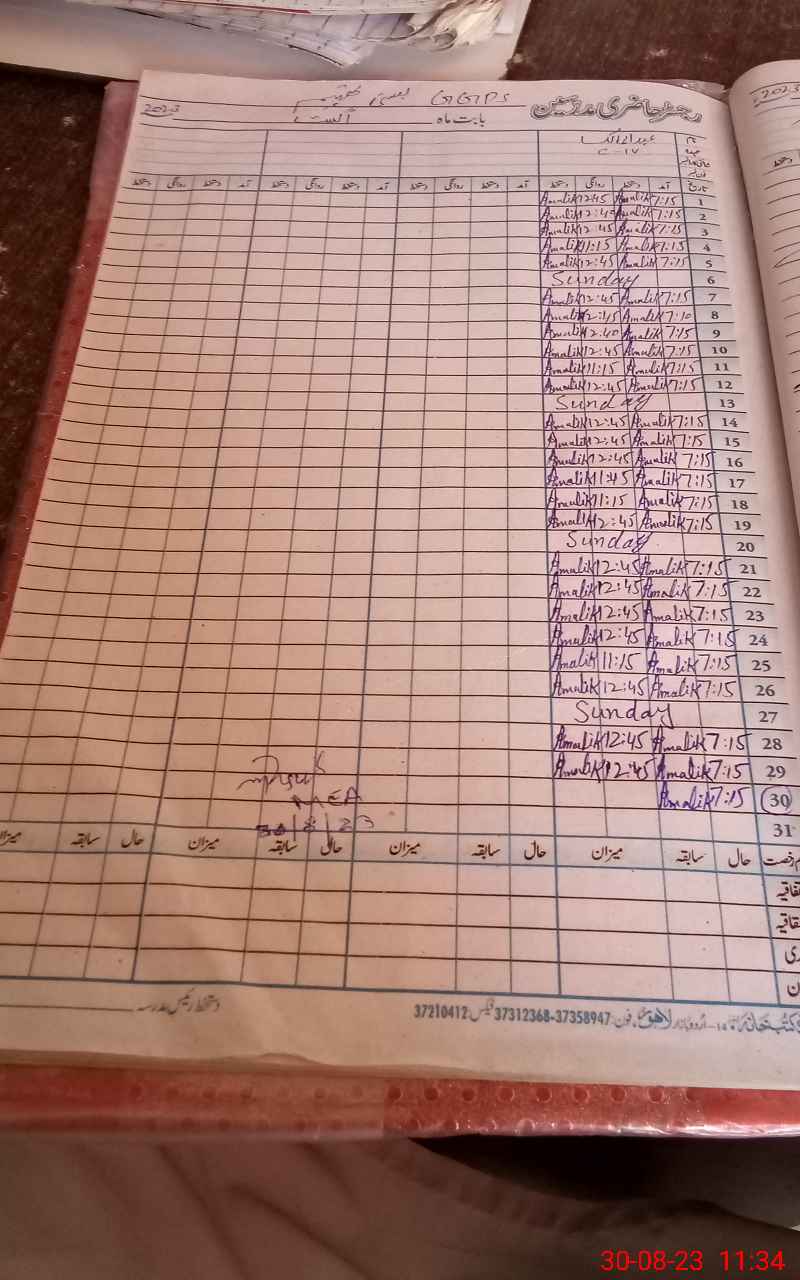 2023
رجسٹر حاضری مدرسین GGPS بستی
بابت ماہ اگست
نام
عہدہ
C-17
تاریخ آمد دستخط روانگی دستخط آمد دستخط روانگی دستخط آمد دستخط روانگی دستخط آمد دستخط روانگی دستخط
1 7:15 Amalik 12:45 Amalik
2 7:15 Amalik 12:45 Amalik
3 7:15 Amalik 12:45 Amalik
4 7:15 Amalik 11:15 Amalik
5 7:15 Amalik 12:45 Amalik
6 Sunday
7 7:15 Amalik 12:45 Amalik
8 7:10 Amalik 12:45 Amalik
9 7:15 Amalik 12:40 Amalik
10 7:15 Amalik 12:45 Amalik
11 7:15 Amalik 11:15 Amalik
12 7:15 Amalik 12:45 Amalik
13 Sunday
14 7:15 Amalik 12:45 Amalik
15 7:15 Amalik 12:45 Amalik
16 7:15 Amalik 12:45 Amalik
17 7:15 Amalik 11:45 Amalik
18 7:15 Amalik 11:15 Amalik
19 7:15 Amalik 12:45 Amalik
20 Sunday
21 7:15 Amalik 12:45 Amalik
22 7:15 Amalik 12:45 Amalik
23 7:15 Amalik 12:45 Amalik
24 7:15 Amalik 12:45 Amalik
25 7:15 Amalik 11:15 Amalik
26 7:15 Amalik 12:45 Amalik
27 Sunday
28 7:15 Amalik 12:45 Amalik
29 7:15 Amalik 12:45 Amalik
30 7:15 Amalik
31
MEA
30/8/23
رخصت حال سابقہ میزان حال سابقہ میزان حال سابقہ میزان حال سابقہ میزان
دستخط رئیس مدرسہ
کتب خانہ اردو بازار لاہور فون: 37312368-37358947 فیکس: 37210412
2023
30-08-23 11:34